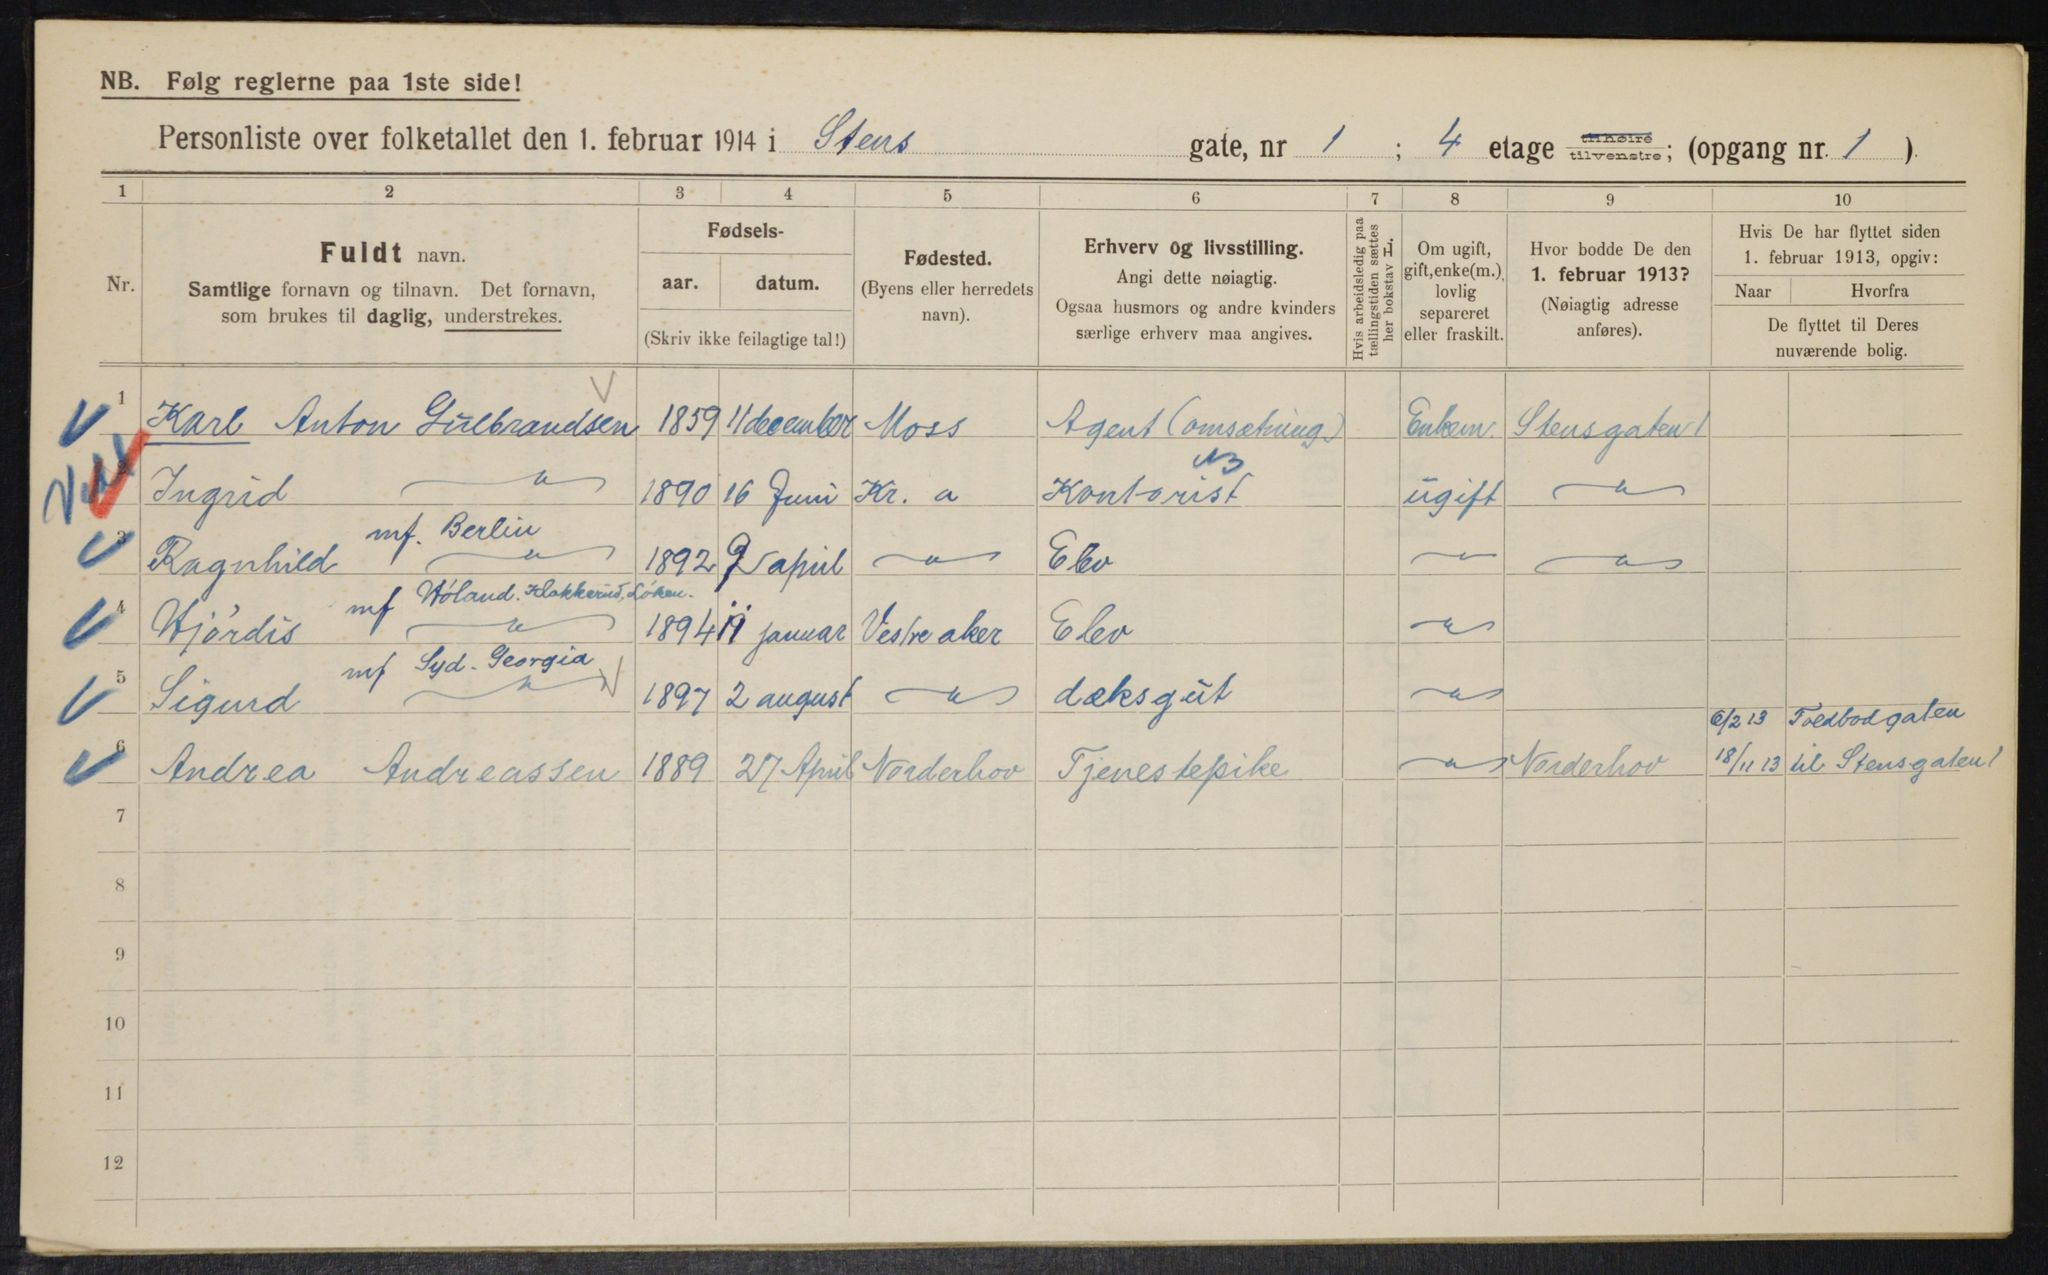 NB. Følg reglerne paa 1ste side!
Personliste over folketallet den 1. februar 1914 i Stens gate, nr 1 ; 4 etage tilhøire tilvenstre; (opgang nr. 1 ).
1 2 3 4 5 6 7 8 9 10
Nr.
Fuldt navn.
Samtlige fornavn og tilnavn. Det fornavn,
som brukes til daglig, understrekes.
Fødsels-
aar. datum.
(Skriv ikke feilagtige tal!)
Fødested.
(Byens eller herredets
navn).
Erhverv og livsstilling.
Angi dette nøiagtig.
Ogsaa husmors og andre kvinders
særlige erhverv maa angives.
Hvis arbeidsledig paa
tællingstiden sættes
her bokstav L.
Om ugift,
gift, enke(m.),
lovlig
separeret
eller fraskilt.
Hvor bodde De den
1. februar 1913?
(Nøiagtig adresse
anføres).
Hvis De har flyttet siden
1. februar 1913, opgiv:
Naar Hvorfra
De flyttet til Deres
nuværende bolig.
1 Karl Anton Gulbrandsen 1859 11 december Moss Agent (omsætning) Enkem. Stensgaten 1
NB
2 Ingrid —"— 1890 16 Juni Kr. a Kontorist ugift —"—
mf. Berlin
3 Ragnhild —"— 1892 9 april —"— Elev —"— —"—
mf Høland. Klakkerud, Løken.
4 Hjørdis —"— 1894 11 januar Vestre aker Elev —"—
mf Syd-Georgia
5 Sigurd —"— 1897 2 august —"— dæksgut —"—
6/2 13 Toldbodgaten
6 Andrea Andreassen 1889 27 April Norderhov Tjenestepike —"— Norderhov 18/11 13 til Stensgaten 1
7
8
9
10
11
12